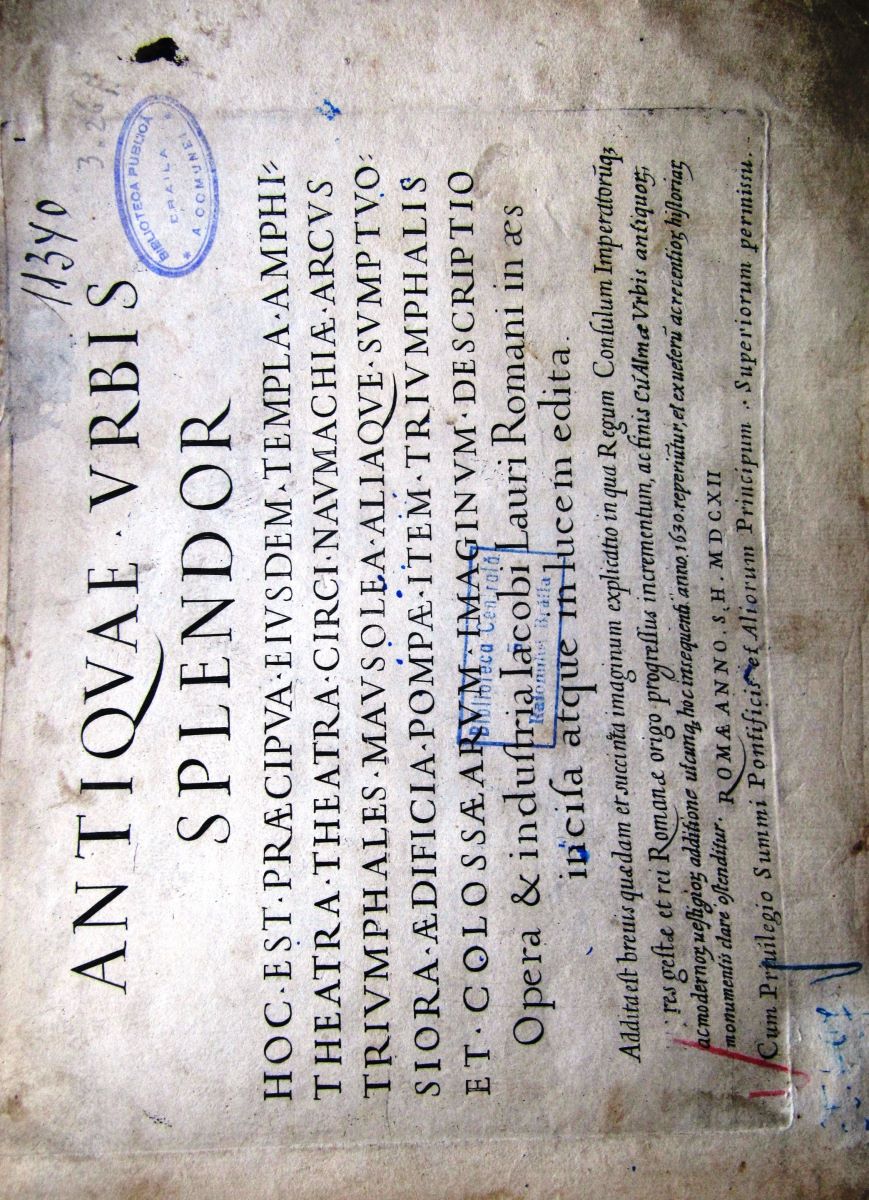 11340
3.267
BIBLIOTECA PUBLICĂ
BRAILA
A COMUNEI
ANTIQVAE · VRBIS
SPLENDOR
HOC · EST · PRÆCIPVA · EIVSDEM · TEMPLA · AMPHI⸗
THEATRA · THEATRA · CIRCI · NAVMACHIÆ · ARCVS
TRIVMPHALES · MAVSOLEA · ALIAQVE · SVMPTVO⸗
SIORA · ÆDIFICIA · POMPÆ · ITEM · TRIVMPHALIS
ET · COLOSSÆARVM · IMAGINVM · DESCRIPTIO
Opera & induſtria Iacobi Lauri Romani in æs
inciſa atque in lucem edita.
Biblioteca Centrală
Raionului Brăila
Addita eſt breuis quædam et ſuccinta imaginum explicatio in qua Regum Conſulum Imperatorūqꝫ
res geſtæ et rei Romanæ origo progreſſus incrementum, ac finis Cū Almæ Vrbis antiquoꝝ,
ac modernoꝝ ueſtigioꝝ additione utcunqꝫ hoc inſequenti anno. 1630. reperiūtur, et ex ueterū ac recentioꝝ hiſtoriar,
monumentis clare oſtenditur. ROMÆ ANNO. S. H. MDCXII
Cum Priuilegio Summi Pontificis et Aliorum Principum · Superiorum permiſſu.